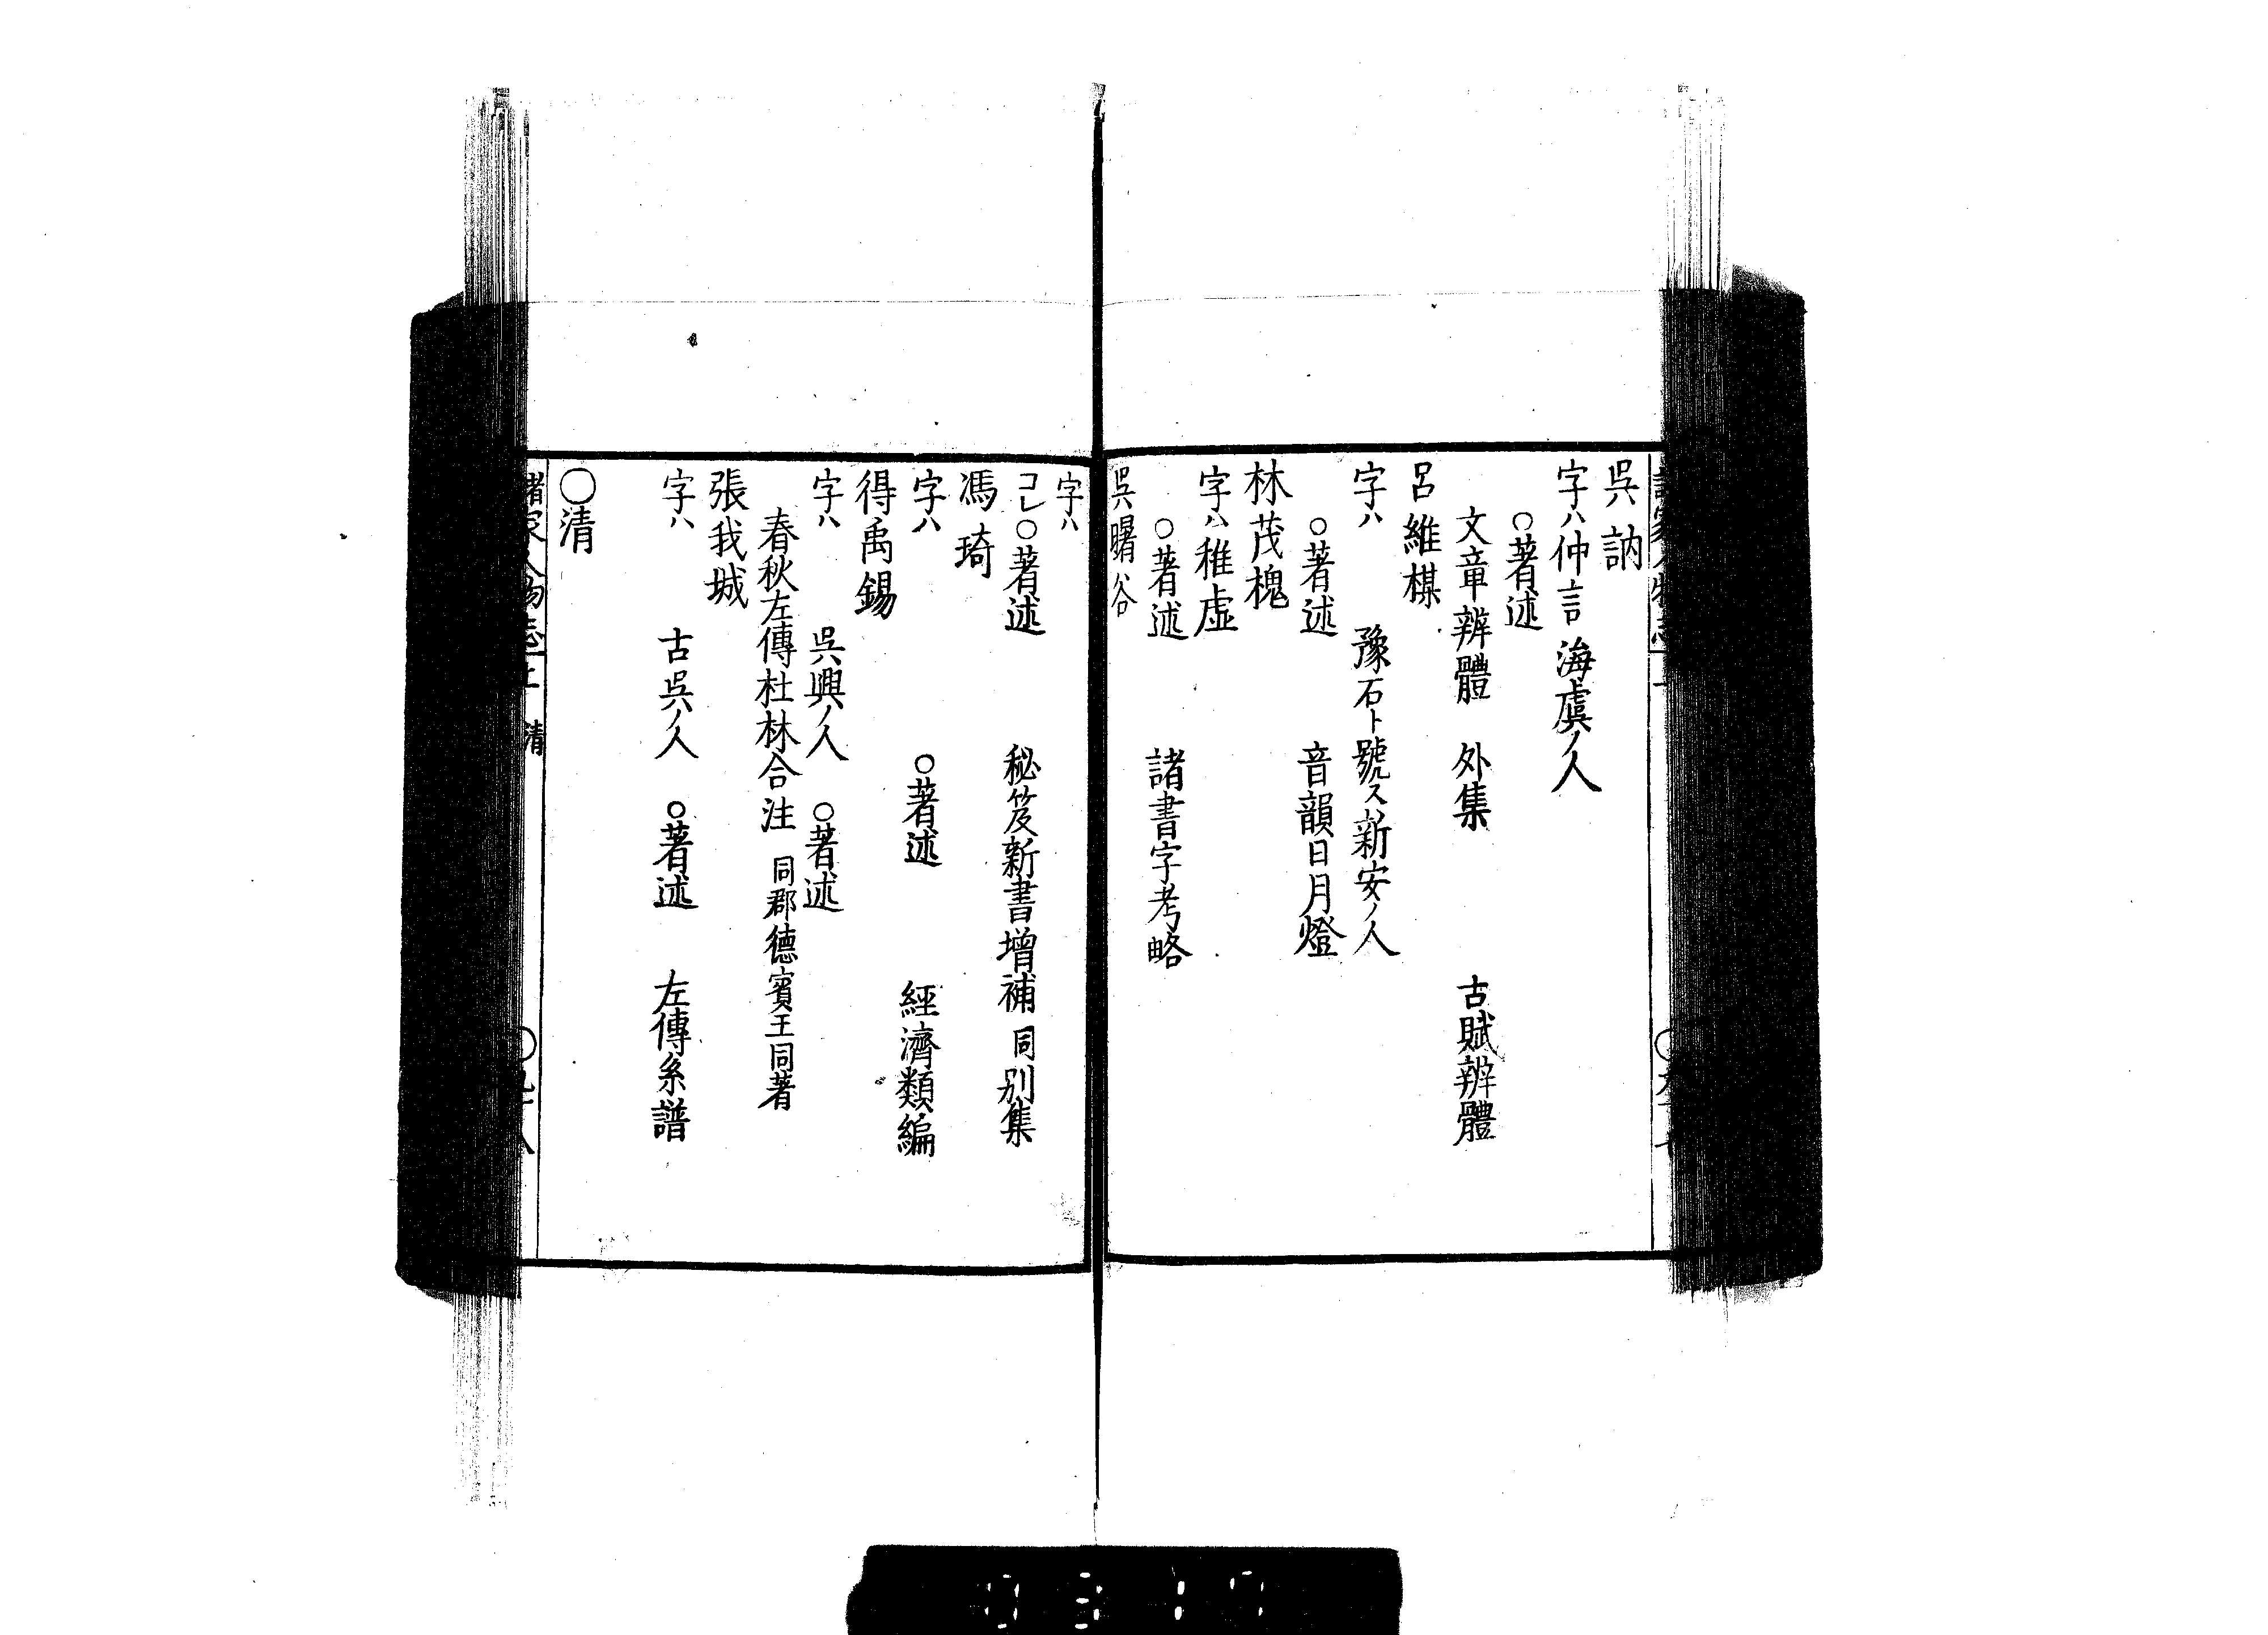 呉訥
字ハ仲言海虞ノ人
○著述
文章辨體 外集 古賦辨體
呂維楳
字ハ 豫石ト號ス新安ノ人
○著述 音韻日月燈
林茂槐
字ハ稚虚
○著述 諸書字考略
呉曙谷
字ハ
コレ○著述 秘笈新書増補 同別集
馮琦
字ハ ○著述 經濟類編
得禹錫
字ハ 呉興ノ人 ○著述
春秋左傳杜林合注 同郡德賓王同著
張我城
字ハ 古呉ノ人 ○著述 左傳系譜
○清
清